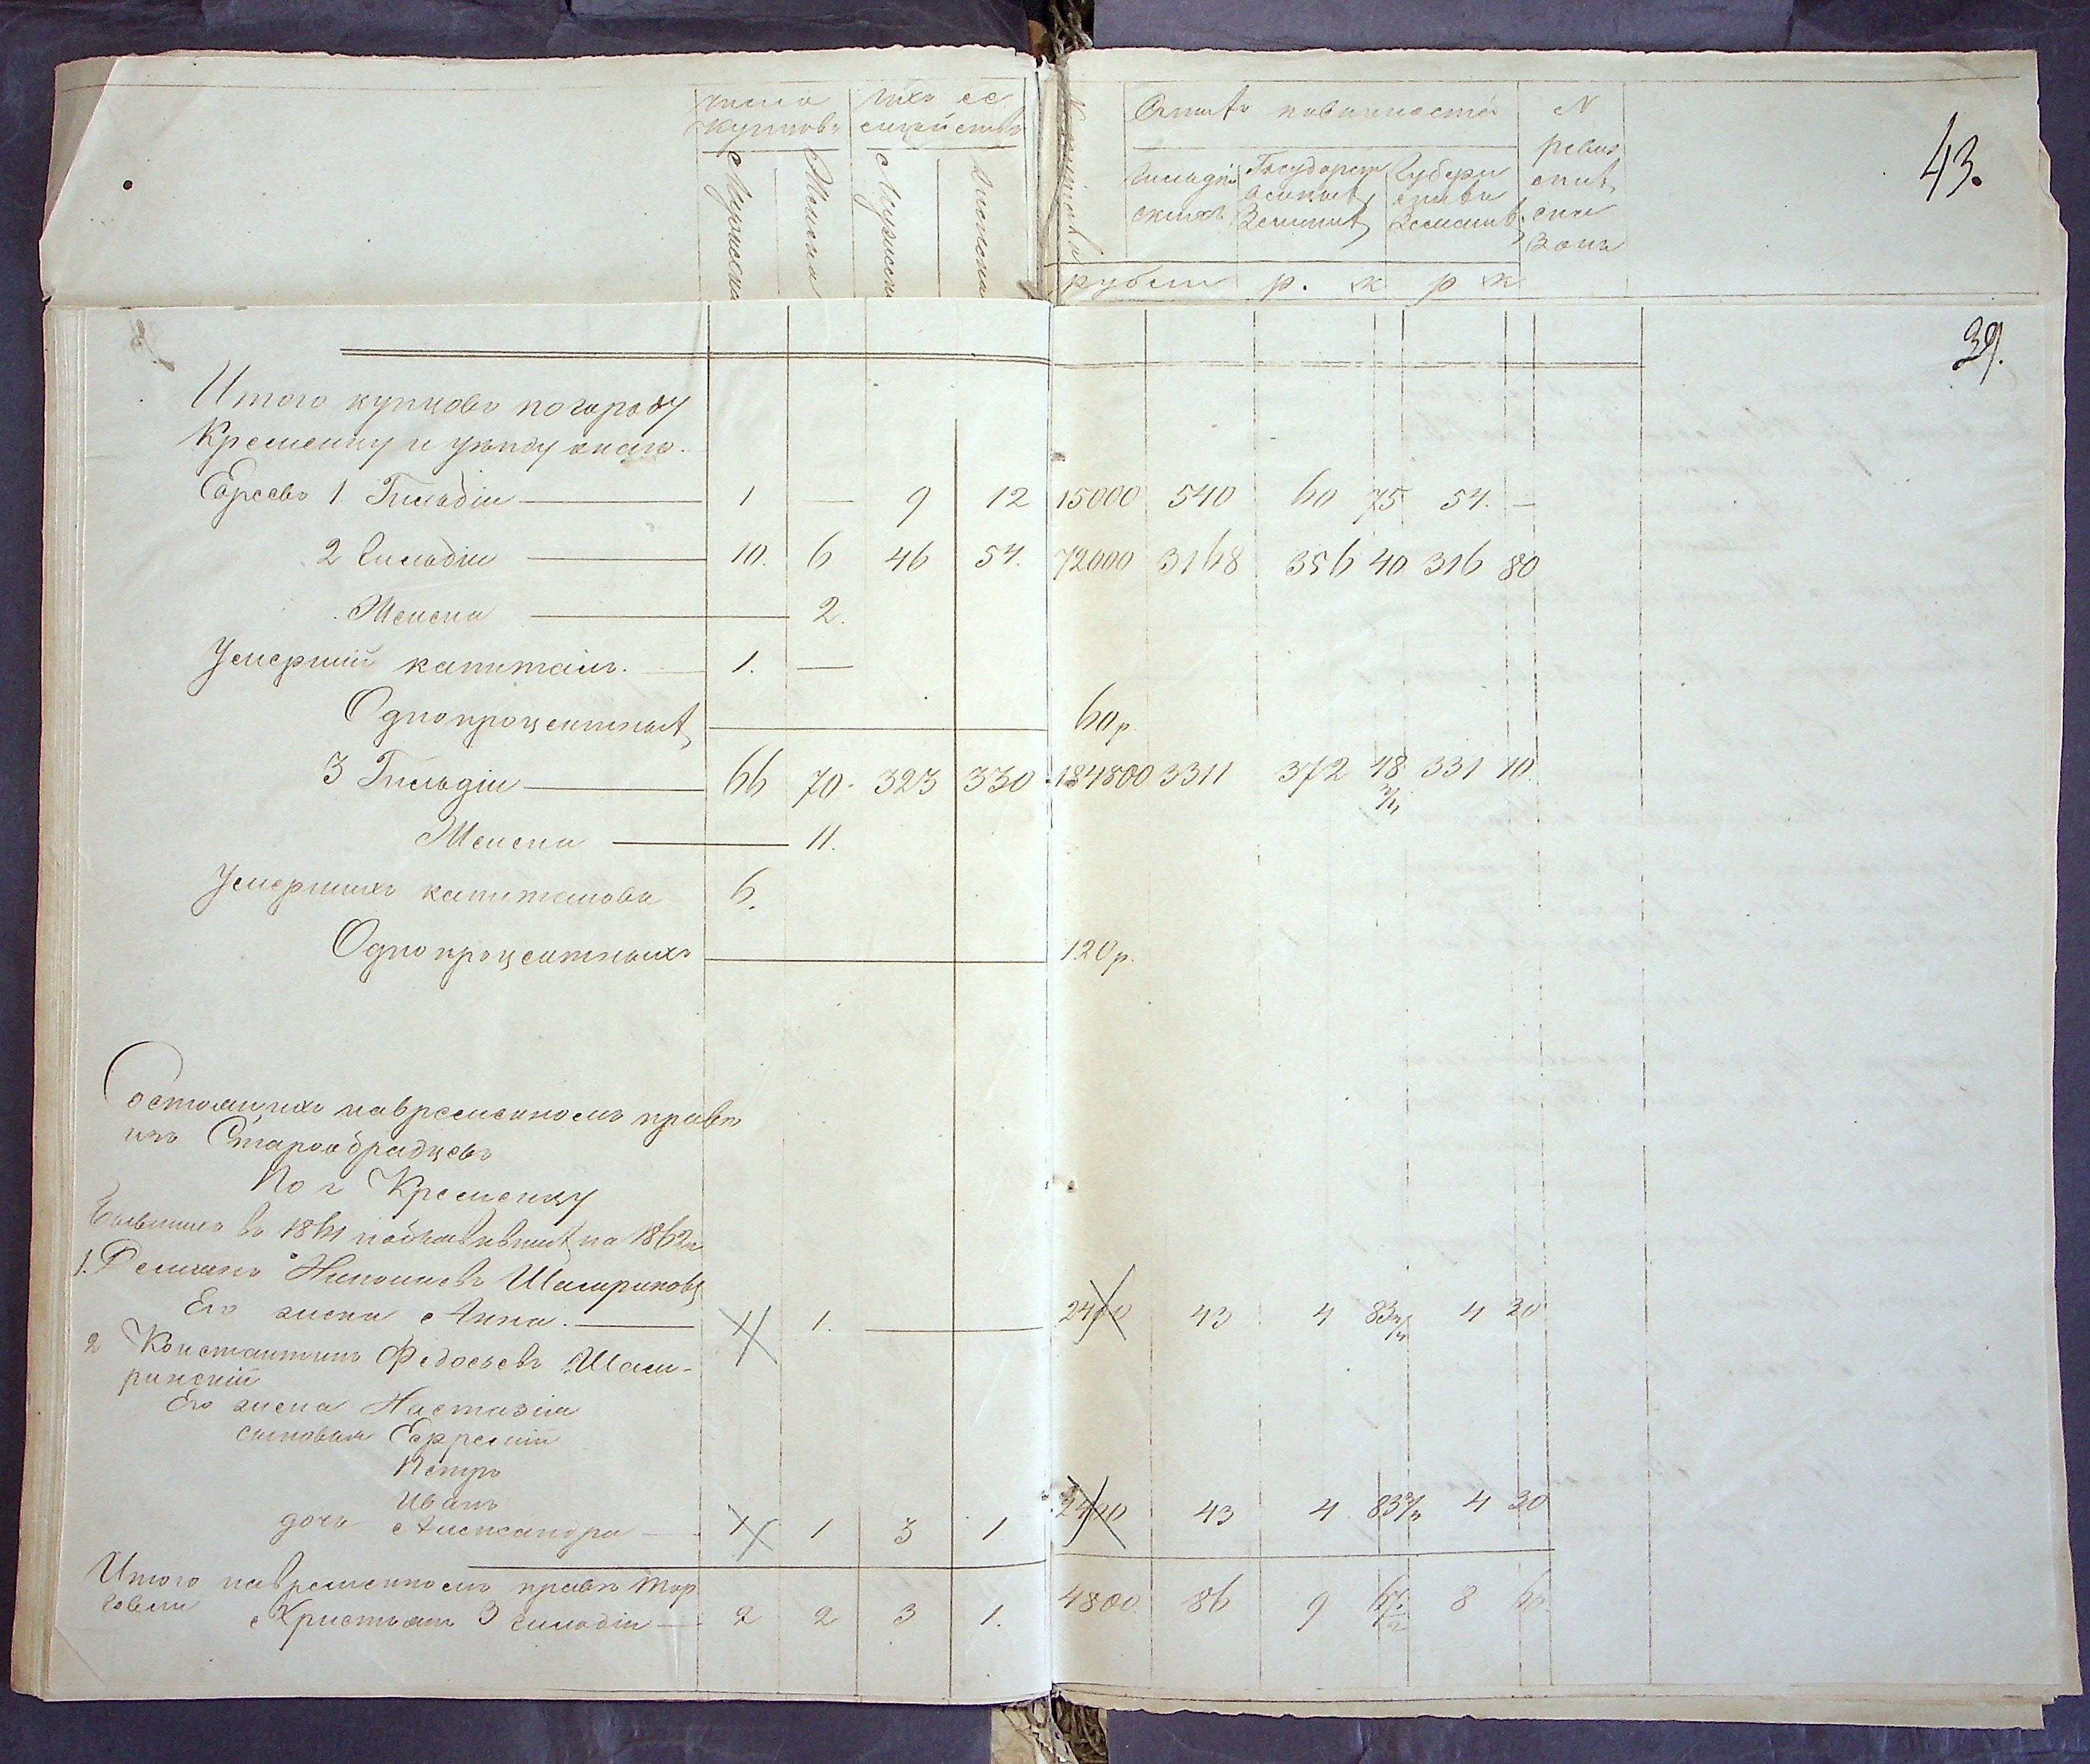 43.
число купцовъ
Мужеска
Женска
ихъ се мейство
Мужеска
Женска
Капиталы
повинностей
Гильдей скихъ
Государст венныхъ Земскихъ
Губерн скихъ Земскихъ
рубли р. к р к
N ревиз сказ
39.
Итого купцовъ по городу
Кременцу и уѣзду онаго.
Евреевъ 1 Гильдіи 1 — 9 12 15000 540 60 75 54. —
2 Гильдіи 10. 6 46 54. 72000 3168 356 40 316 80
Женска 2.
Умершій капиталъ. 1. —
Однопроцентныхъ 60 р.
3 Гильдіи 66 70. 323 330. 184800 3311 372 48 331 10.
Женска 11.
Умершихъ капиталовъ 6.
Однопроцентныхъ 120 р.
Состоящихъ на временномъ правѣ
изъ Старообрядцевъ
По г Кременцу
Бывшихъ въ 1861 и объявившихъ на 1862 г
1. Николаевъ
Его жена Анна. 1 1. 2400 43 4 83 4 30
2 Константинъ Федосѣевъ Шам-
ринскій
Его жена Настазія
сыновья Ефремій
Петръ
Иванъ
дочь Александра 1 1 3 1 2400 43 4 83 4 30
Итого на временномъ правѣ тор
говли Христьянъ 3 Гильдіи 2 2 3 1. 4800. 86 9 8 60